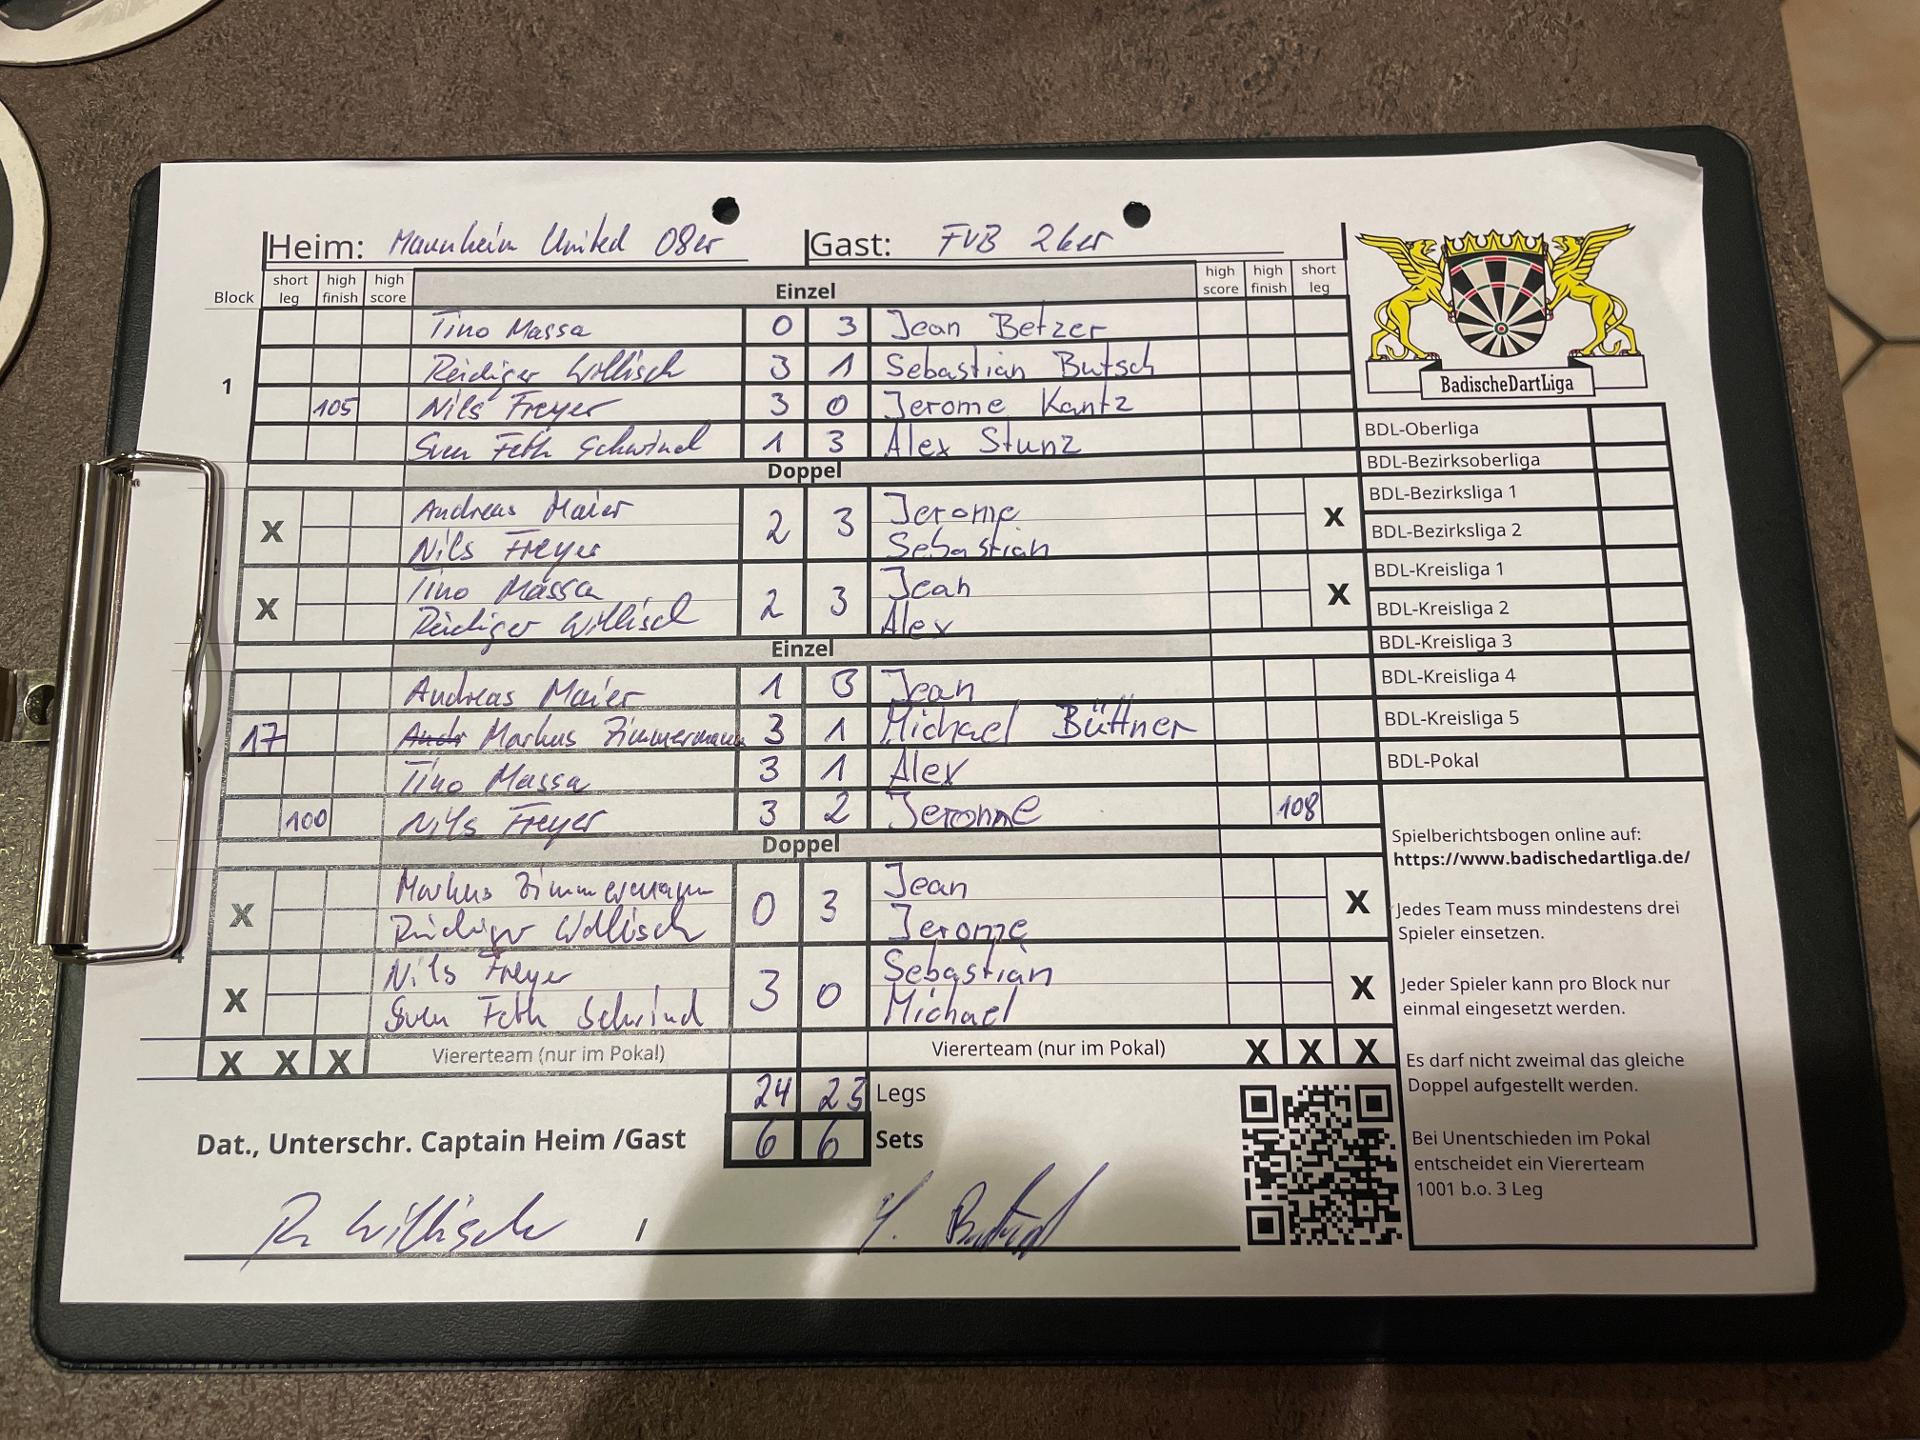 Heim: Mannheim United 08er Gast: FVB 26er
Block short leg high finish high score Einzel high score high finish short leg
Tino Massa 0 3 Jean Betzer
Rüdiger Willisch 3 1 Sebastian Butsch
1 105 Nils Freyer 3 0 Jerome Kantz
Sven Feth Schwind 1 3 Alex Stunz
Doppel
X Andreas Maier 2 3 Jerome X
Nils Freyer Sebastian
X Tino Massa 2 3 Jean X
Rüdiger Willisch Alex
Einzel
Andreas Maier 1 3 Jean
17 Andr Markus Zimmermann 3 1 Michael Büttner
Tino Massa 3 1 Alex
100 Nils Freyer 3 2 Jerome 108
Doppel
X Markus Zimmermann 0 3 Jean X
Rüdiger Willisch Jerome
X Nils Freyer 3 0 Sebastian X
Sven Feth Schwind Michael
X X X Viererteam (nur im Pokal) Viererteam (nur im Pokal) X X X
24 23 Legs
Dat., Unterschr. Captain Heim /Gast 6 6 Sets
R. Willisch /
BadischeDartLiga
BDL-Oberliga
BDL-Bezirksoberliga
BDL-Bezirksliga 1
BDL-Bezirksliga 2
BDL-Kreisliga 1
BDL-Kreisliga 2
BDL-Kreisliga 3
BDL-Kreisliga 4
BDL-Kreisliga 5
BDL-Pokal
Spielberichtsbogen online auf:
https://www.badischedartliga.de/
Jedes Team muss mindestens drei
Spieler einsetzen.
Jeder Spieler kann pro Block nur
einmal eingesetzt werden.
Es darf nicht zweimal das gleiche
Doppel aufgestellt werden.
Bei Unentschieden im Pokal
entscheidet ein Viererteam
1001 b.o. 3 Leg